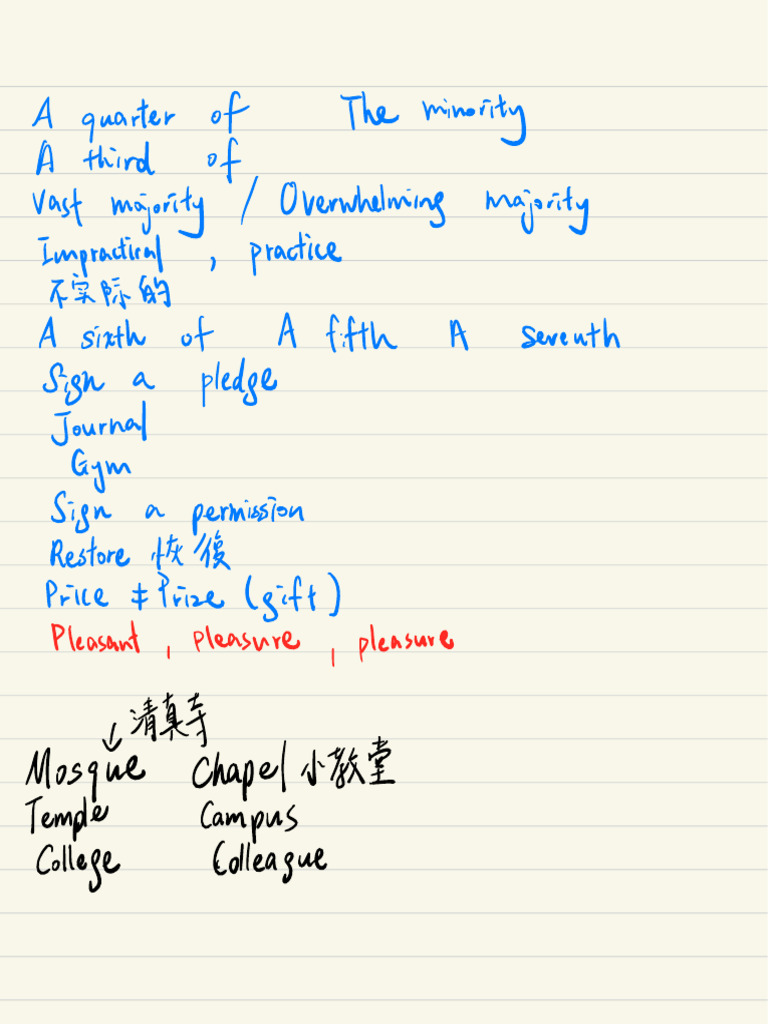 A quarter of The minority
A third of
Vast majority / Overwhelming majority
Impractical , practice
不实际的
A sixth of A fifth A seventh
Sign a pledge
Journal
Gym
Sign a permission
Restore 恢復
Price ≠ Prize (gift)
Pleasant , pleasure , pleasure
清真寺
Mosque Chapel 小教堂
Temple Campus
College Colleague